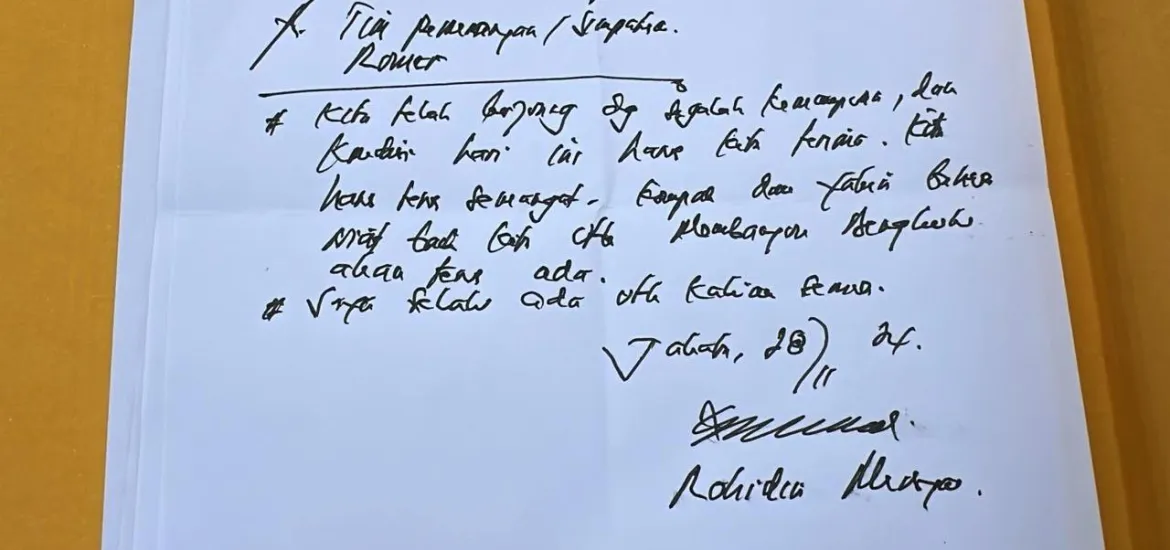 Tim Pemenangan / Simpatisan.
Romer
# Kita telah berjuang dg segalah kemampuan, dan
kondisi hari ini harus kita terima. Kita
harus terus semangat, dan yakin bahwa
niat baik kita utk Membangun Bengkulu
akan terus ada.
# Saya selalu ada utk kalian semua.
Jakarta, 28/11 24.
Rohidin Mersyah.